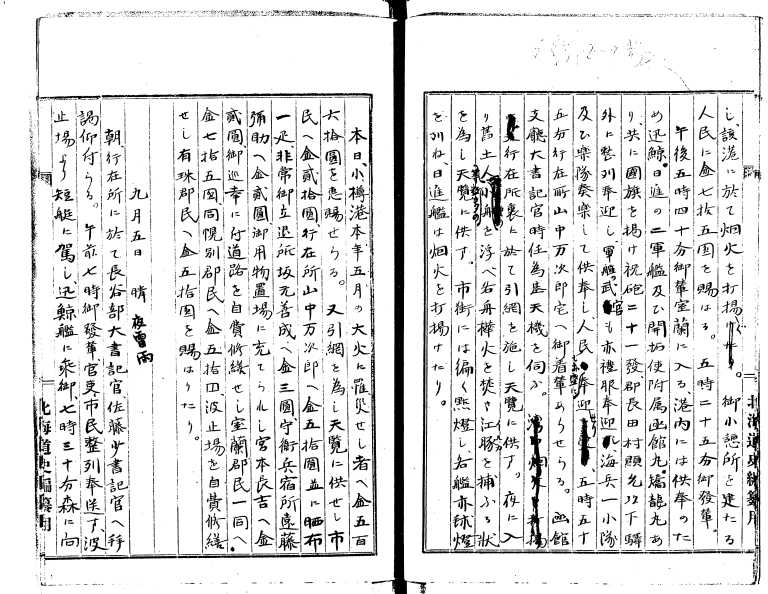 し、該港に於て烟火を打揚ぐ。御小憩所を建たる
人民に金七拾五圓を賜はる。五時二十五分御發輦、
午後五時四十分御輦室蘭に入る。港内には供奉のた
め迅鯨、日進の二軍艦及び開拓使附属函館丸、矯龍丸あ
り共に國旗を揭げ祝砲二十一發郡長田村顯允以下驛
外に整列奉迎し、軍艦武官も亦禮服奉迎、海兵一小隊
及び樂隊奏樂して供奉し人民奉迎 五時五十
五分行在所山中万次郎宅へ御着輦あらせらる。函館
支廳大書記官時任為基天機を伺ふ。
行在所裏に於て引網を施し天覽に供す。夜に入
り舊土人小舟を浮べ各舟樺火を焚き江豚を捕ふる状
を為し天覽に供す。市街には徧く點燈し各艦亦球燈
を列ね日進艦は烟火を打揚けたり。
本日、小樽港本年五月の大火に罹災せし者へ金五百
六拾圓を恵賜せらる。又引網を為し天覽に供せし市
民へ金貳拾圓行在所山中万次郎へ金五拾圓並に晒布
一疋、非常御立退所坂元善成へ金三圓守衛兵宿所遠藤
彌助へ金貳圓御用物置場に充てられし宮本長吉へ金
貳圓、御巡幸に付道路を自費修繕せし室蘭郡民一同へ
金七拾五圓、同幌別郡民へ金五拾四、波止場を自費修繕
せし有珠郡民へ金五拾圓を賜はりたり。
九月五日 晴 夜雷雨
朝、行在所に於て長谷部大書記官佐藤少書記官へ拝
謁仰付らる。午前七時御發輦、官吏、市民整列奉送す、波
止場より短艇に駕し迅鯨艦に乘御、七時三十分森に向
北海道史編纂用
北海道史編纂用